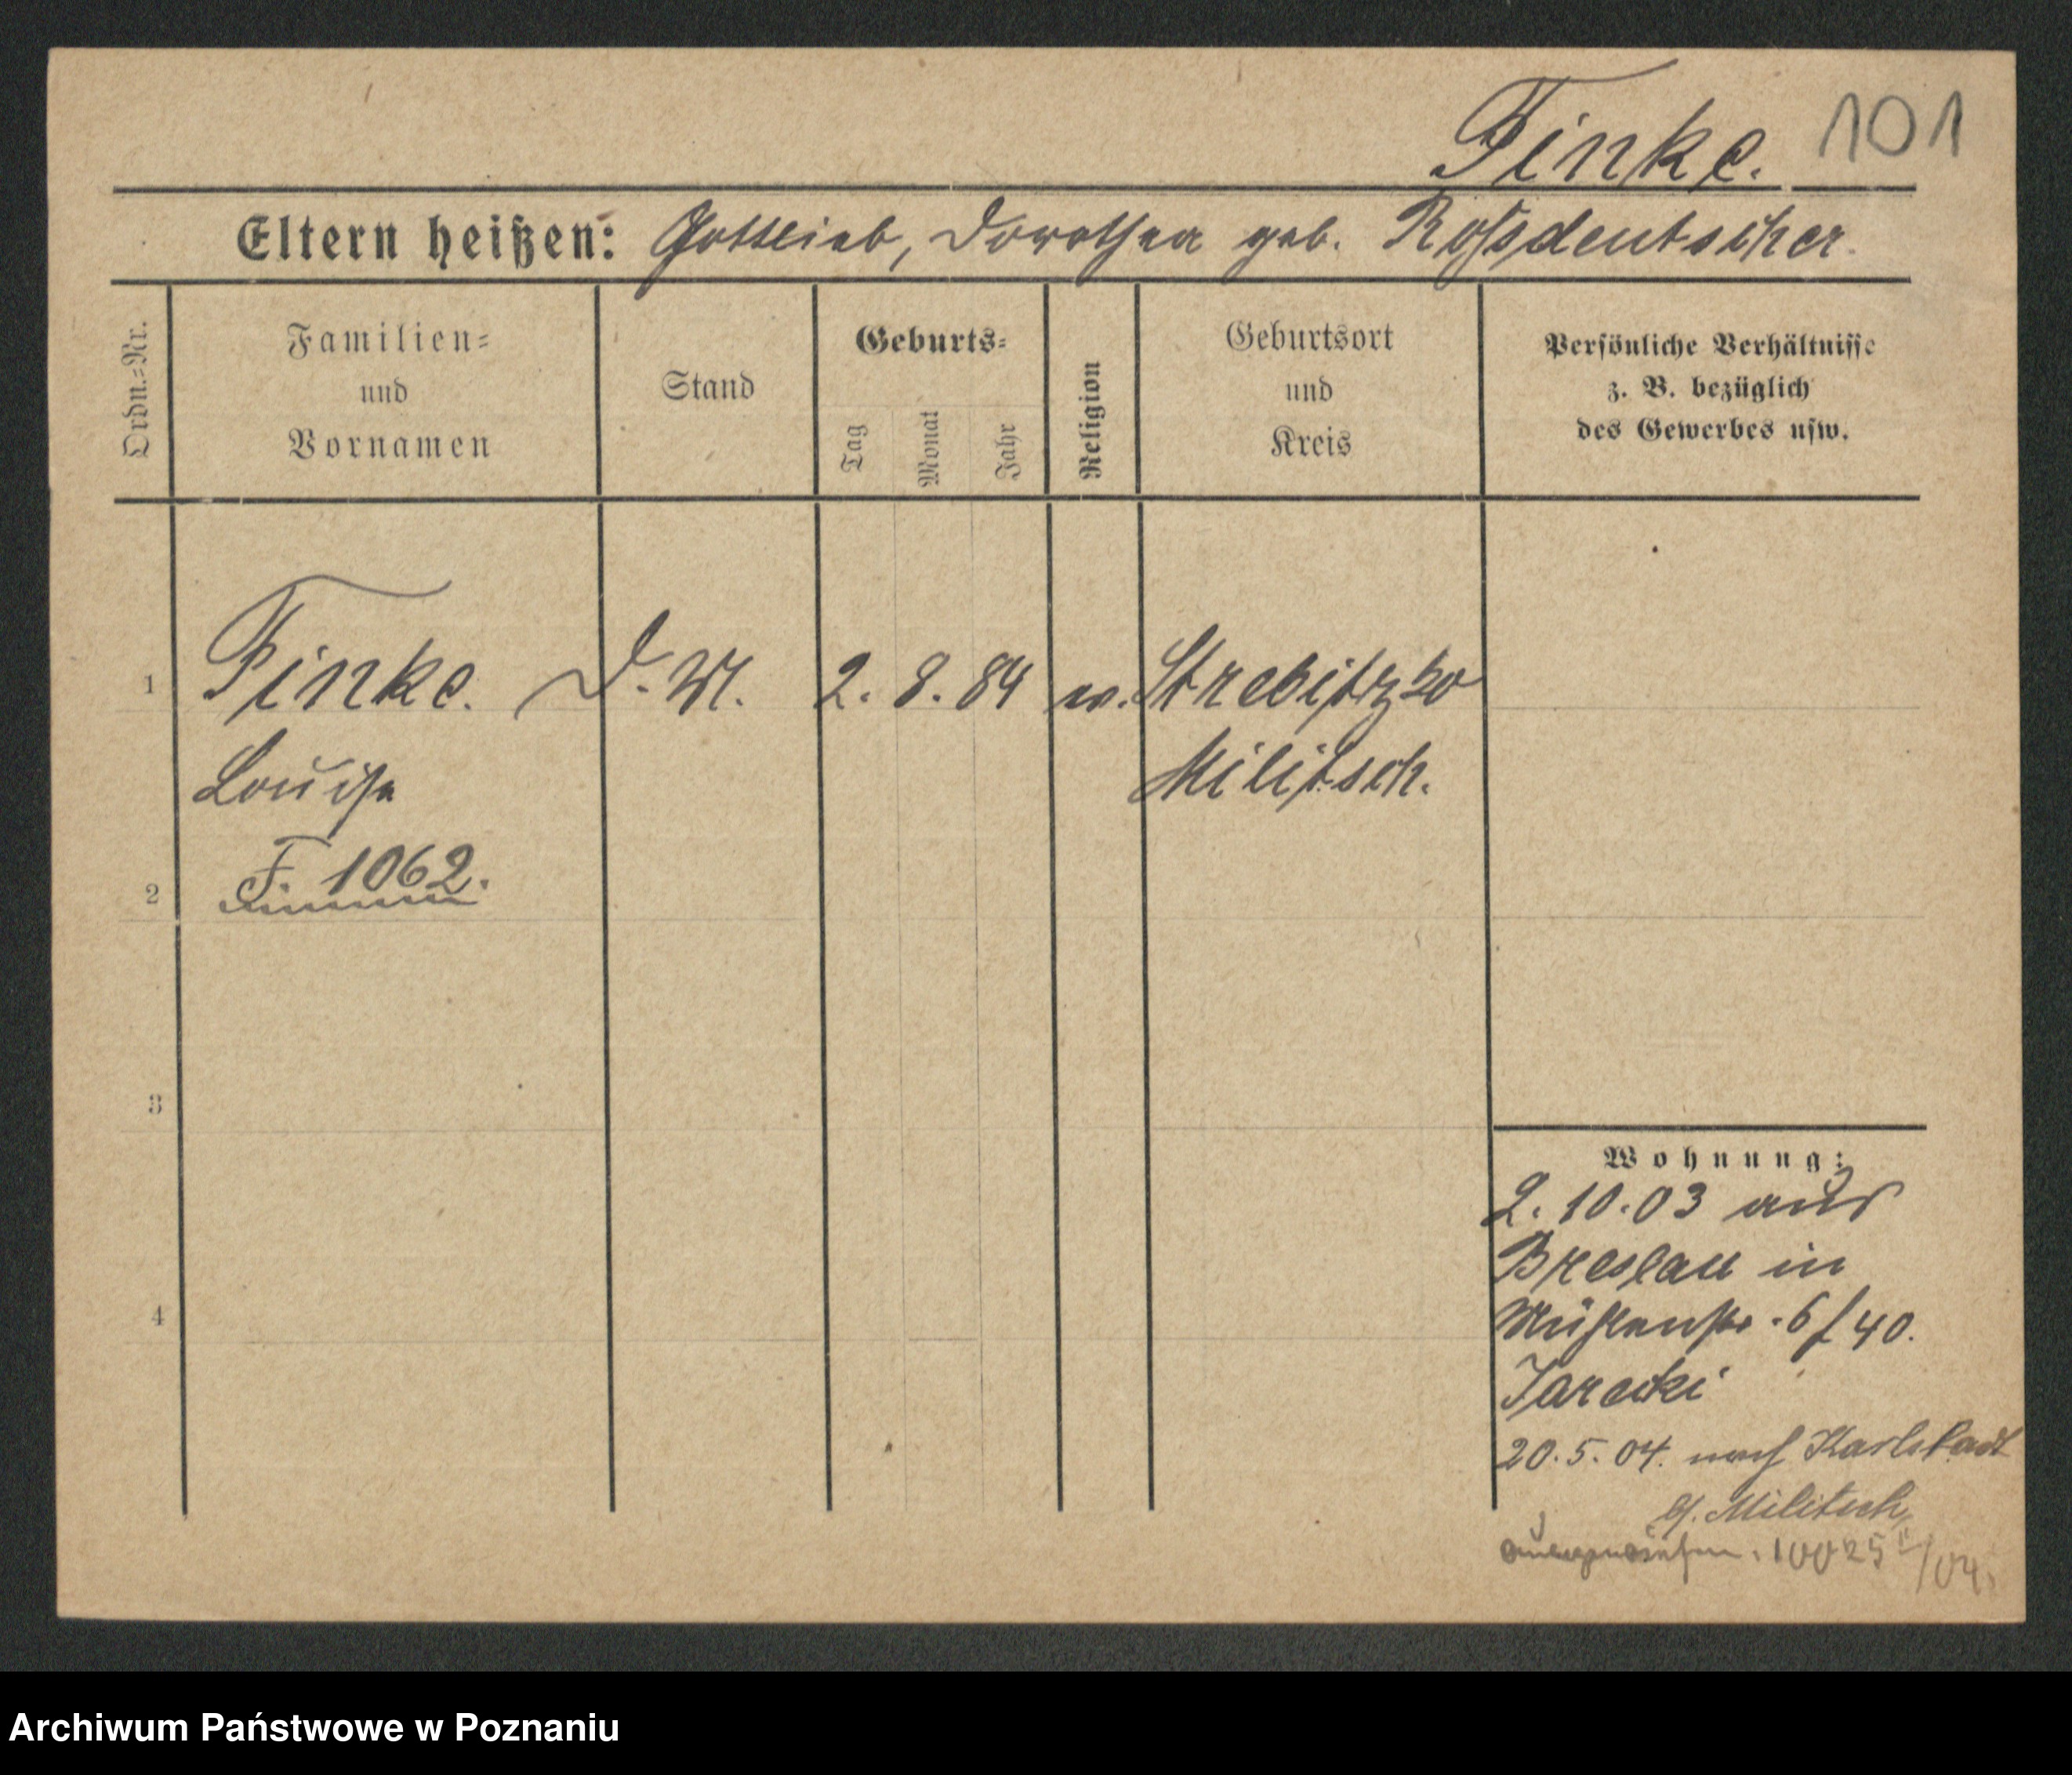 Finke. 101
Eltern heißen: Gottlieb, Dorothea geb. Rossdeutscher.
Ordn.=Nr.
Familien=
und
Vornamen
Stand
Geburts=
Tag
Monat
Jahr
Religion
Geburtsort
und
Kreis
Persönliche Verhältnisse
z. B. bezüglich
des Gewerbes usw.
1 Finke. D. M. 2. 8. 84 ev. Strebitzko
Louise Militsch.
2 F. 1062.
3
4
Wohnung:
2. 10. 03 aus
Breslau in
Mühlenstr. 6/40.
Jarecki
20. 5. 04. nach Karlstadt
b/. Militsch
10025 /04.
Archiwum Państwowe w Poznaniu